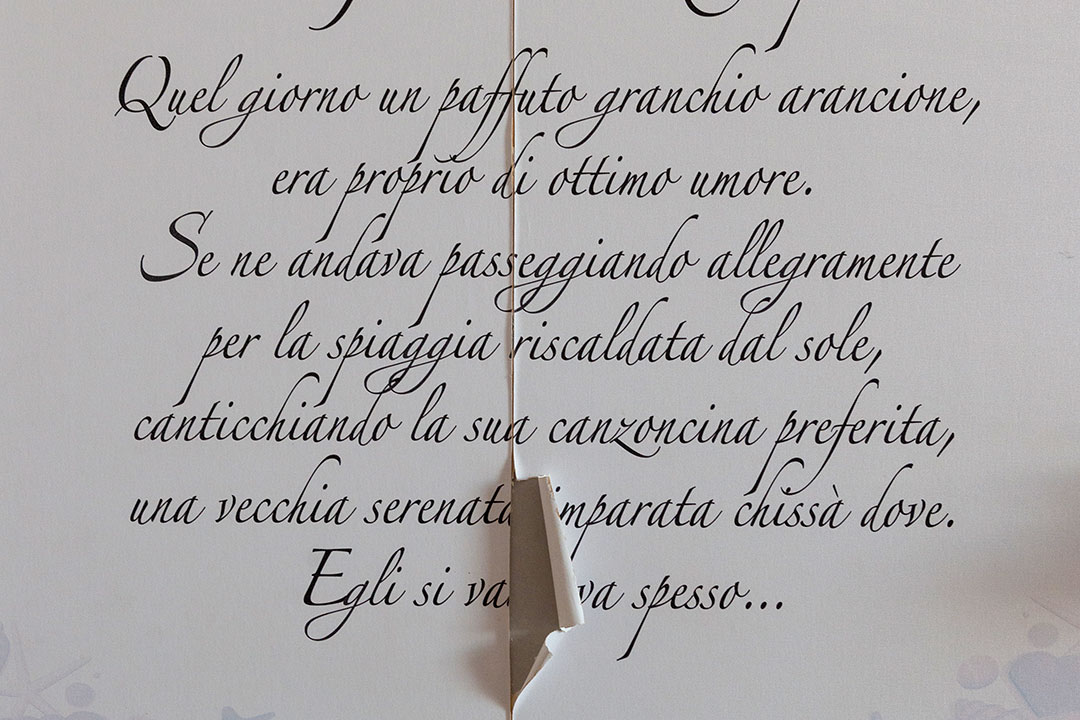 Quel giorno un paffuto granchio arancione,
era proprio di ottimo umore.
Se ne andava passeggiando allegramente
per la spiaggia riscaldata dal sole,
canticchiando la sua canzoncina preferita,
una vecchia serenata imparata chissà dove.
Egli si spesso...